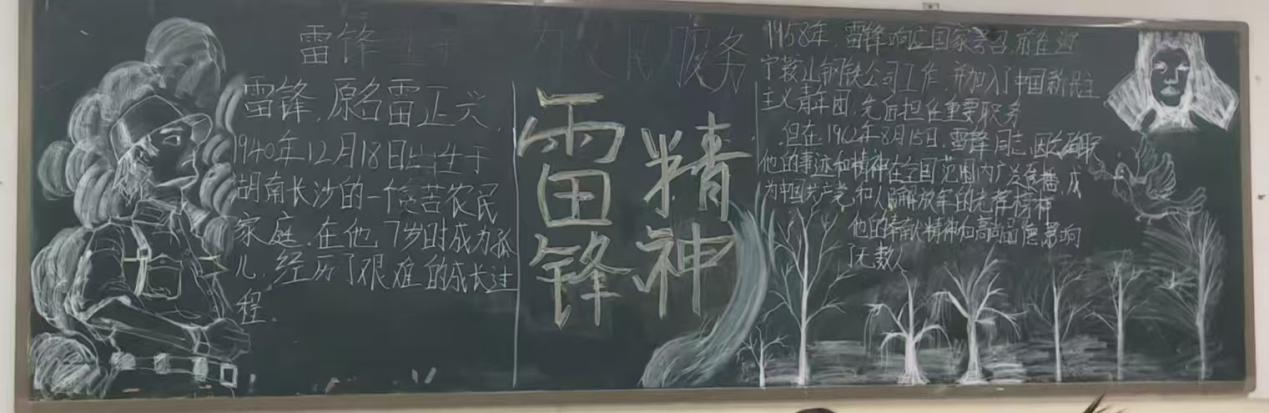 雷锋
雷锋，原名雷正兴，
1940年12月18日出生于
湖南长沙的一个贫苦农民
家庭.在他7岁时成为孤
儿，经历了艰难的成长过
程.
服务
雷锋
精神
1958年，雷锋响应国家号召，前往辽
宁鞍山钢铁公司工作，并加入了中国新民主
主义青年团，先后担任重要职务
但在1962年8月15日，雷锋同志因公殉职
他的事迹和精神在全国范围内广泛传播，成
为中国共产党和人民解放军的光荣榜样
他的奉献精神和高尚品德影响
了无数人